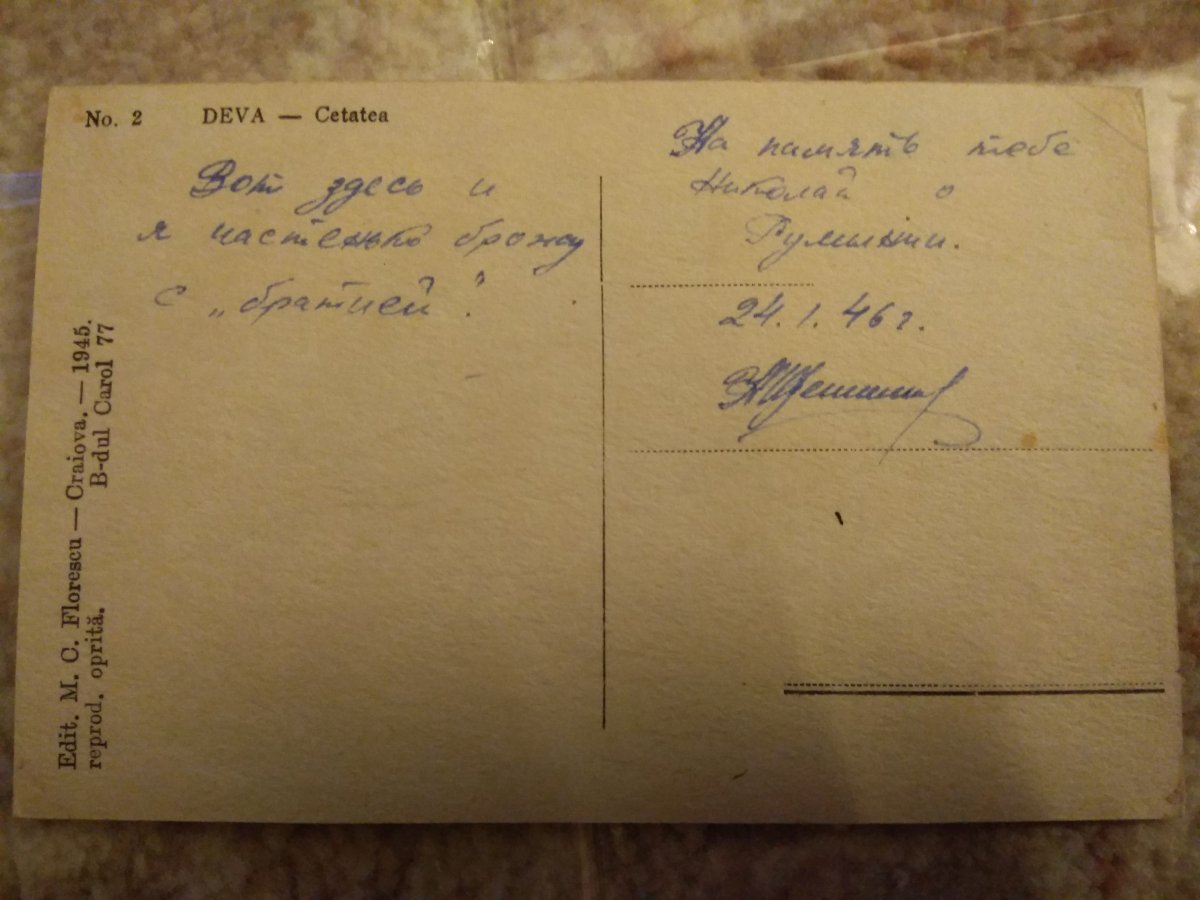 No. 2 DEVA — Cetatea
Вот здесь и
я частенько брожу
с „братией".
На память тебе
Николай о
Румынии.
24.1.46г.
Edit. M. C. Florescu — Craiova. — 1945.
reprod. oprită. B-dul Carol 77